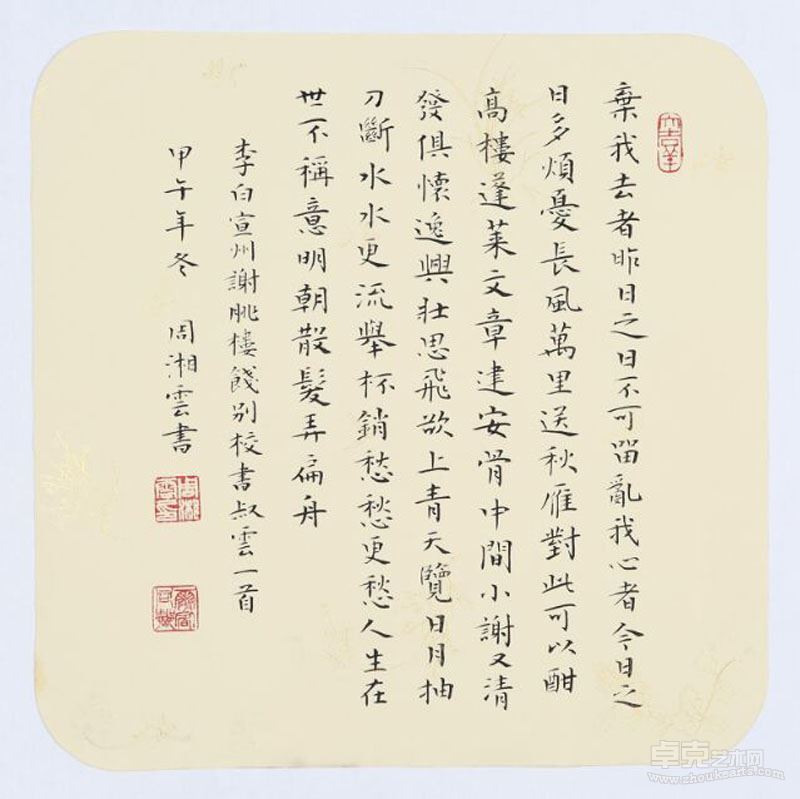 棄我去者昨日之日不可留亂我心者今日之
日多煩憂長風萬里送秋雁對此可以酣
高樓蓬萊文章建安骨中間小謝又清
發俱懷逸興壯思飛欲上青天覽日月抽
刀斷水水更流舉杯銷愁愁更愁人生在
世不稱意明朝散髮弄扁舟
李白宣州謝朓樓餞別校書叔雲一首
甲午年冬 周湘雲書
卓克艺术网
www.zhoukearts.com